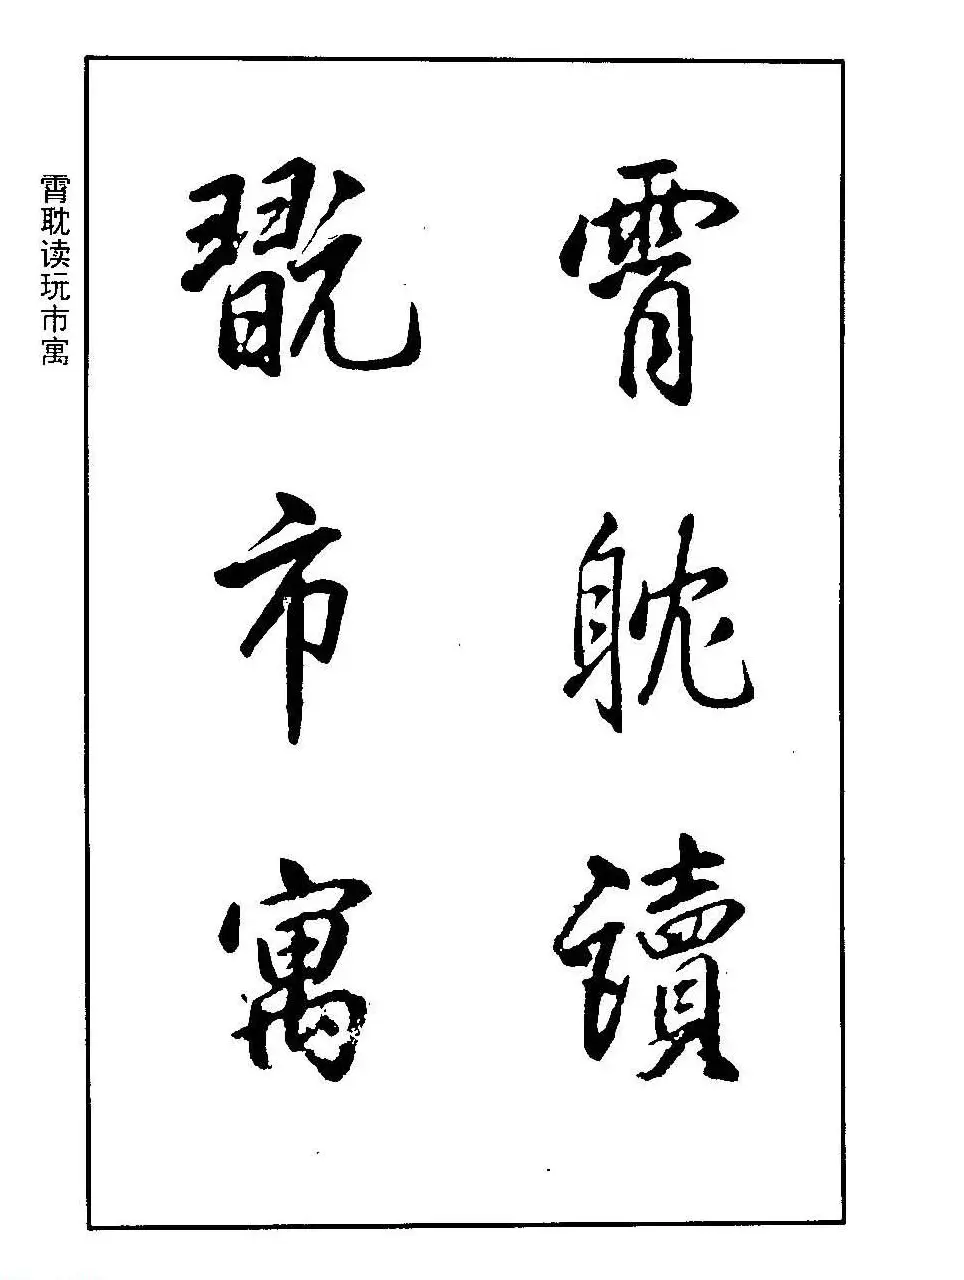 霄躭讀
翫市寓
霄耽读玩市寓